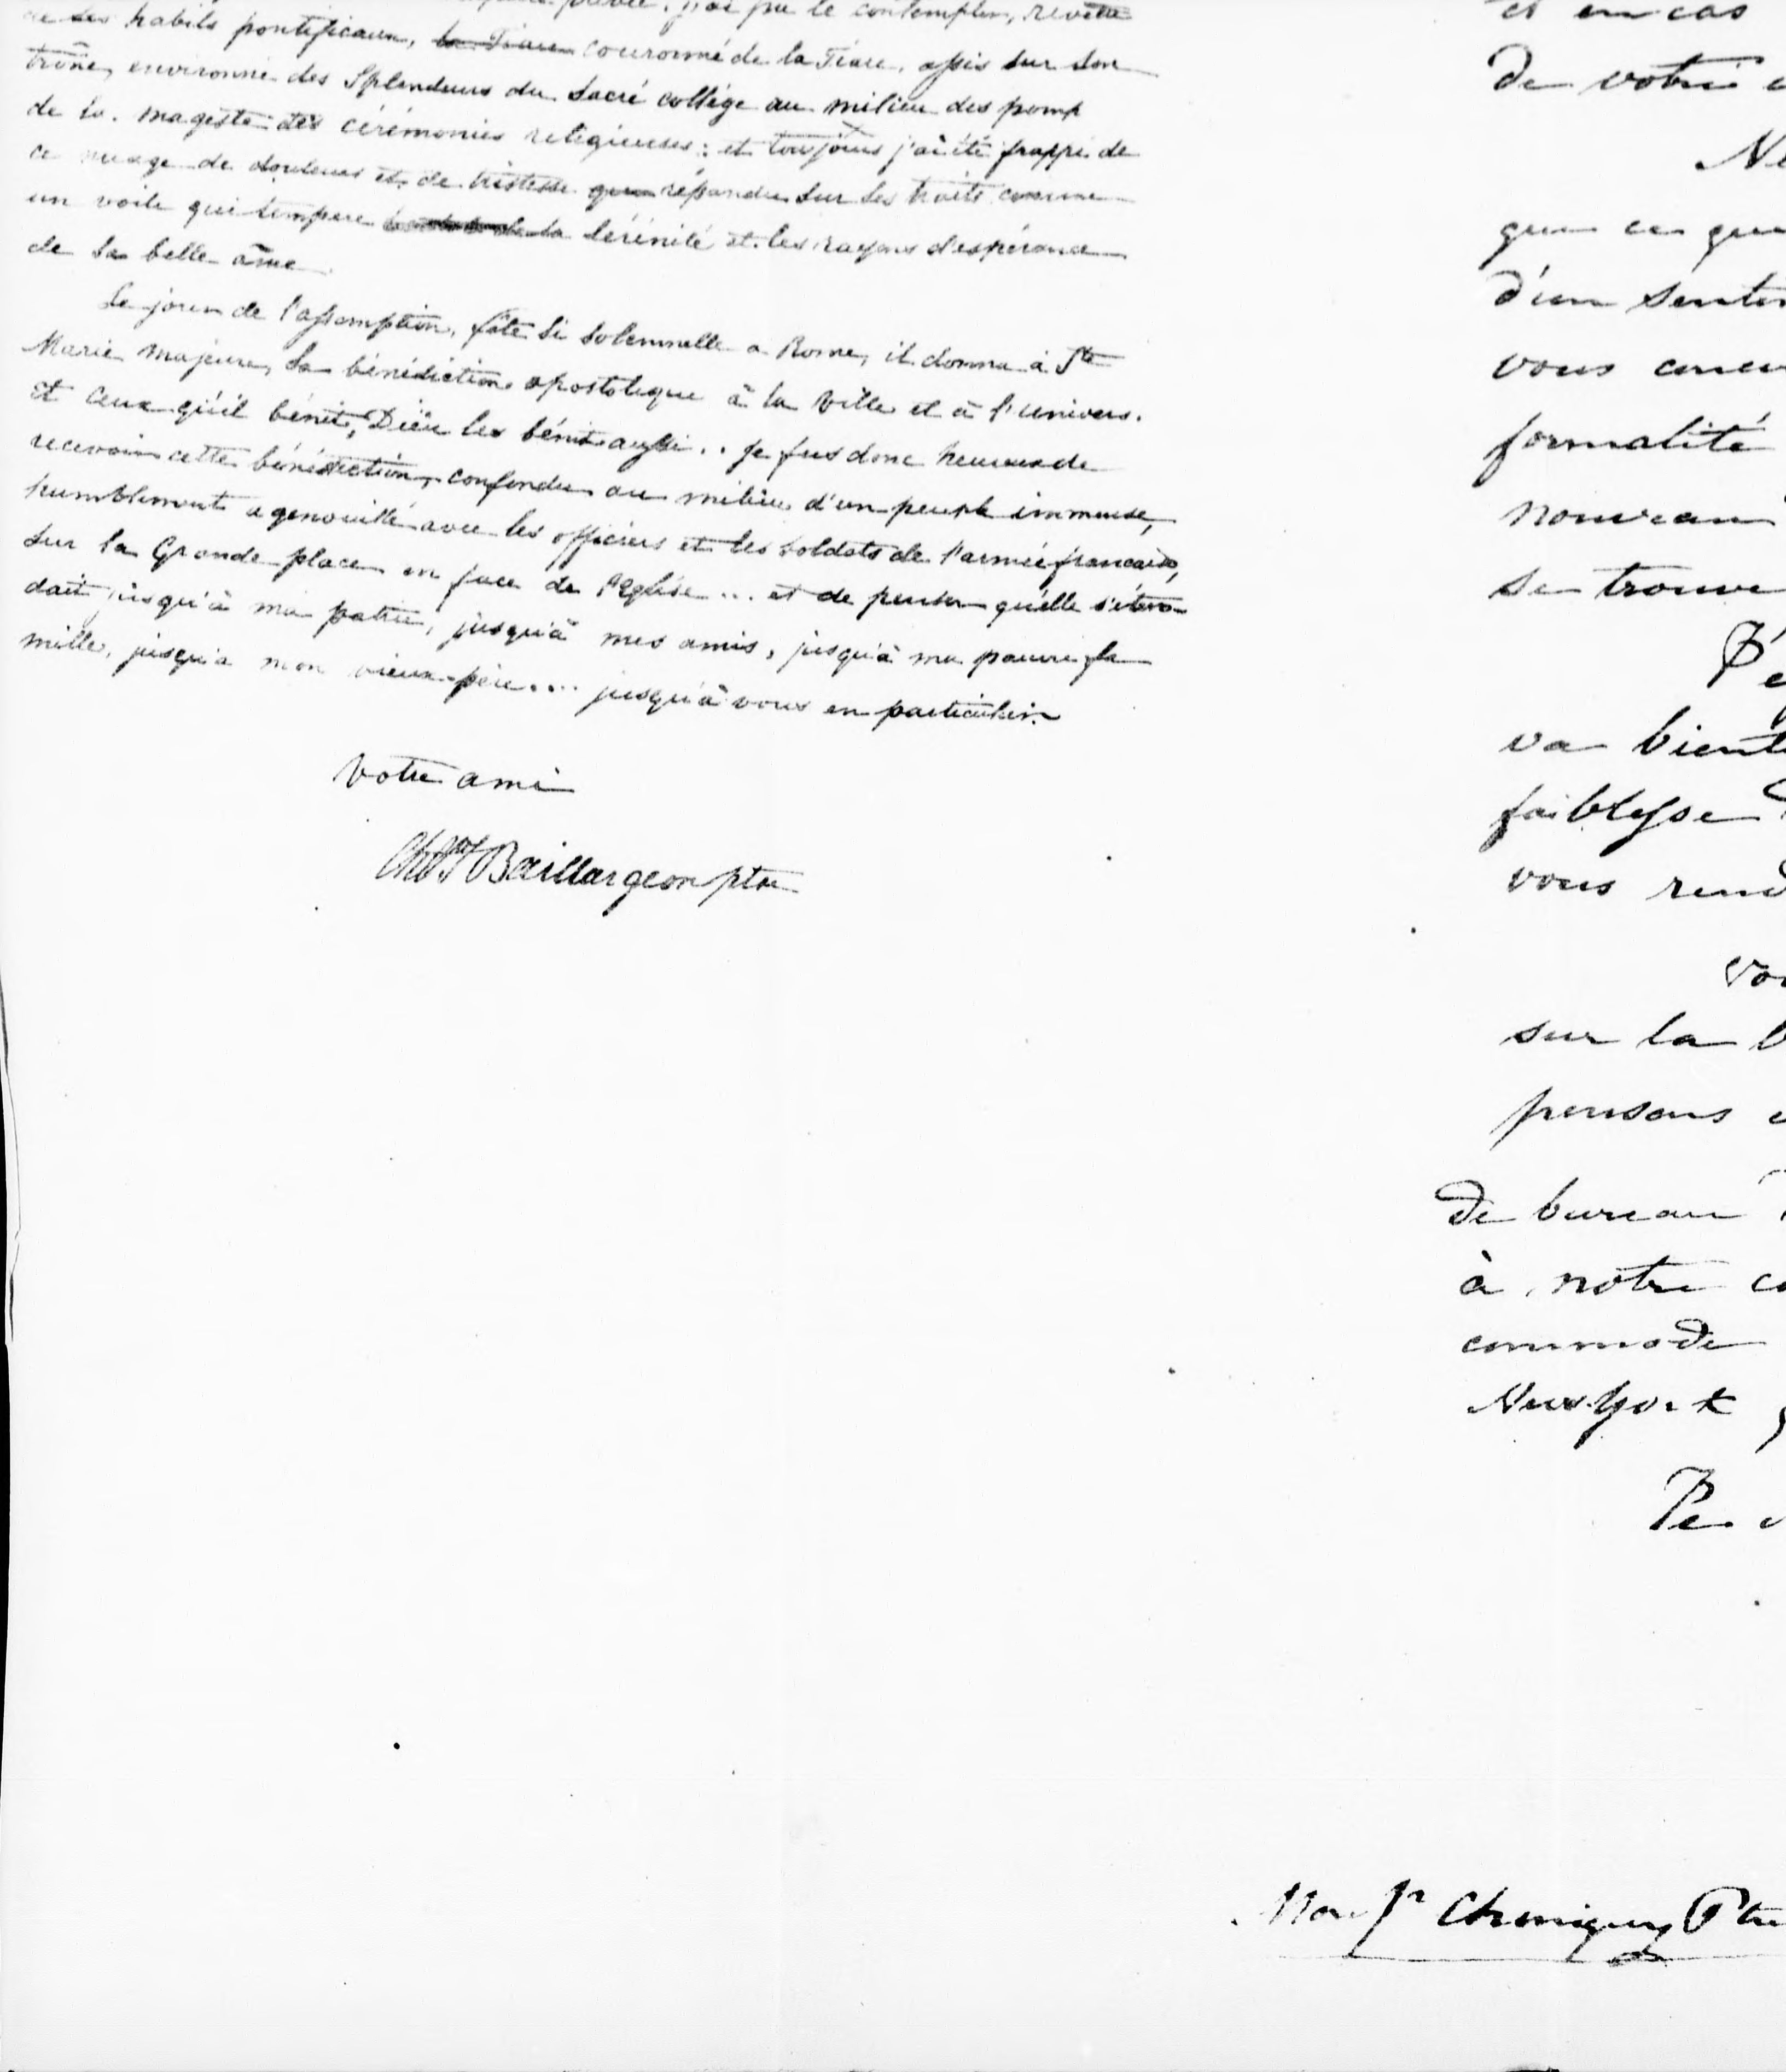 j'ai pu le contempler, revêtu
de ses habits pontificaux, la Tiare couronné de la Tiare, assis sur son
trône, environné des Splendeurs du Sacré collége au milieu des pomp
de la magesté des cérémonies religieuses; et toujours j'ai été frappé de
ce nuage de douleurs et de tristesse que répandu sur ses traits comme
un voile qui tempere la sérénité et les rayons d'espérance
de sa belle âme
Le jour de l'assomption, fête si solemnelle a Rome, il donna à Ste
Marie majeure, sa bénédiction apostolique à la ville et à l'univers.
Et ceux qu'il bénit, Dieu les bénit aussi.. Je fus donc heureux de
recevoir cette bénédiction, confondu au milieu d'un peuple immense,
humblement agenouillé avec les officiers et les soldats de l'armée française,
sur la Grande place en face de l'Eglise ... et de penser qu'elle s'éten-
dait jusqu'à ma patrie, jusqu'à mes amis, jusqu'à ma pauvre fa
mille, jusqu'a mon vieux père.... jusqu'à vous en particulier.
Votre ami
Baillargeon ptre
et en cas
de votre
que ce que
d'un sentim
vous
formalité
nouveau
se trouve
va bient
faiblesse
vous rend
vo
sur la b
pensons
de bureau
à notre co
commode
New-York
Monsr Chiniquy Ptre